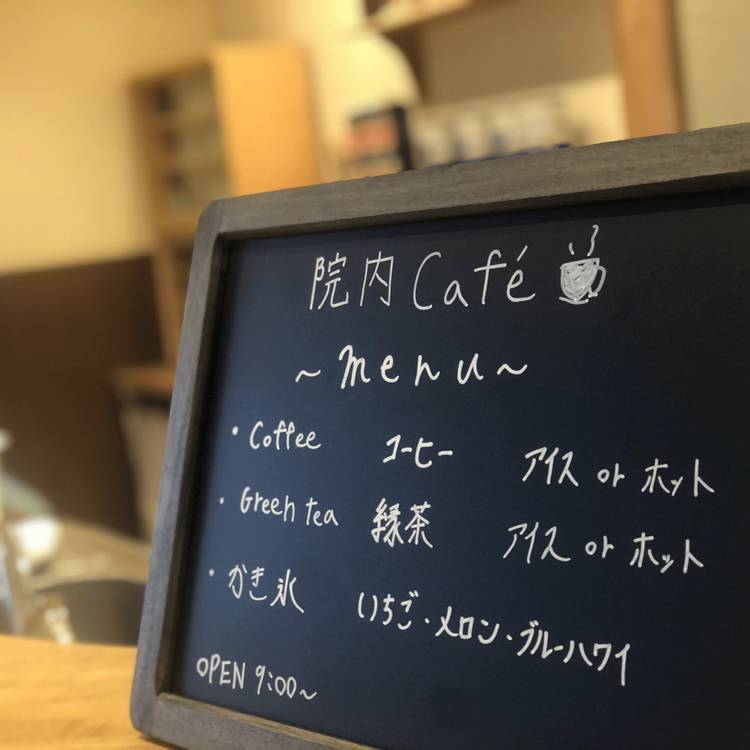 院内Café
~menu~
・Coffee コーヒー アイス or ホット
・Green tea 緑茶 アイス or ホット
・かき氷 いちご・メロン・ブルーハワイ
OPEN 9:00~